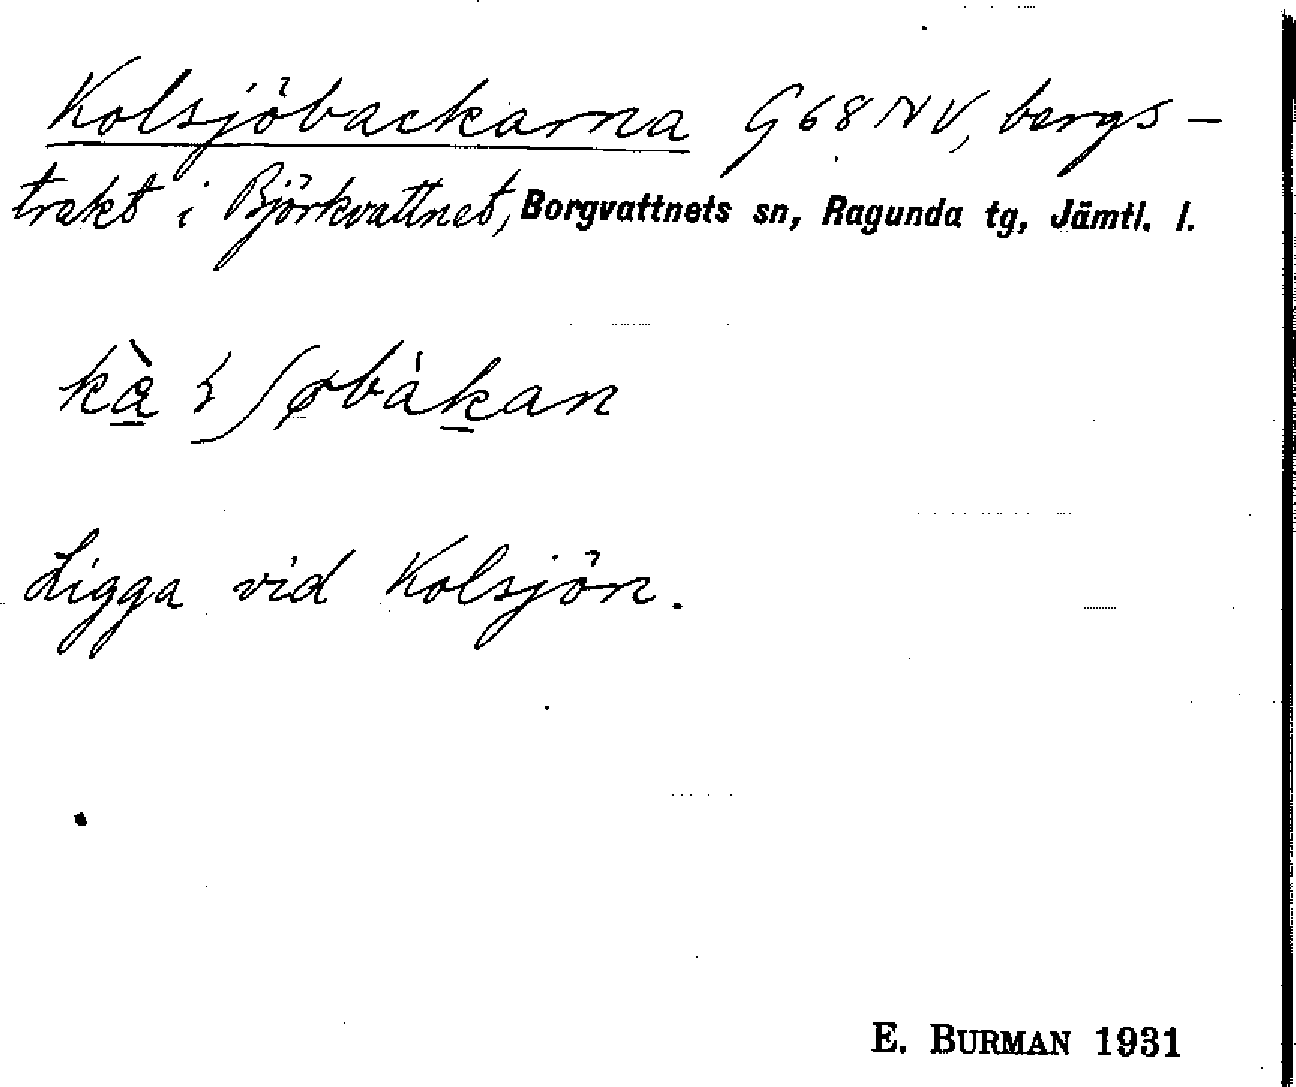 Kolsjöbackarna G68NV, bergs-
trakt i Björkvattnet, Borgvattnets sn, Ragunda tg, Jämtl. l.
Ligga vid Kolsjön.
E. BURMAN 1931